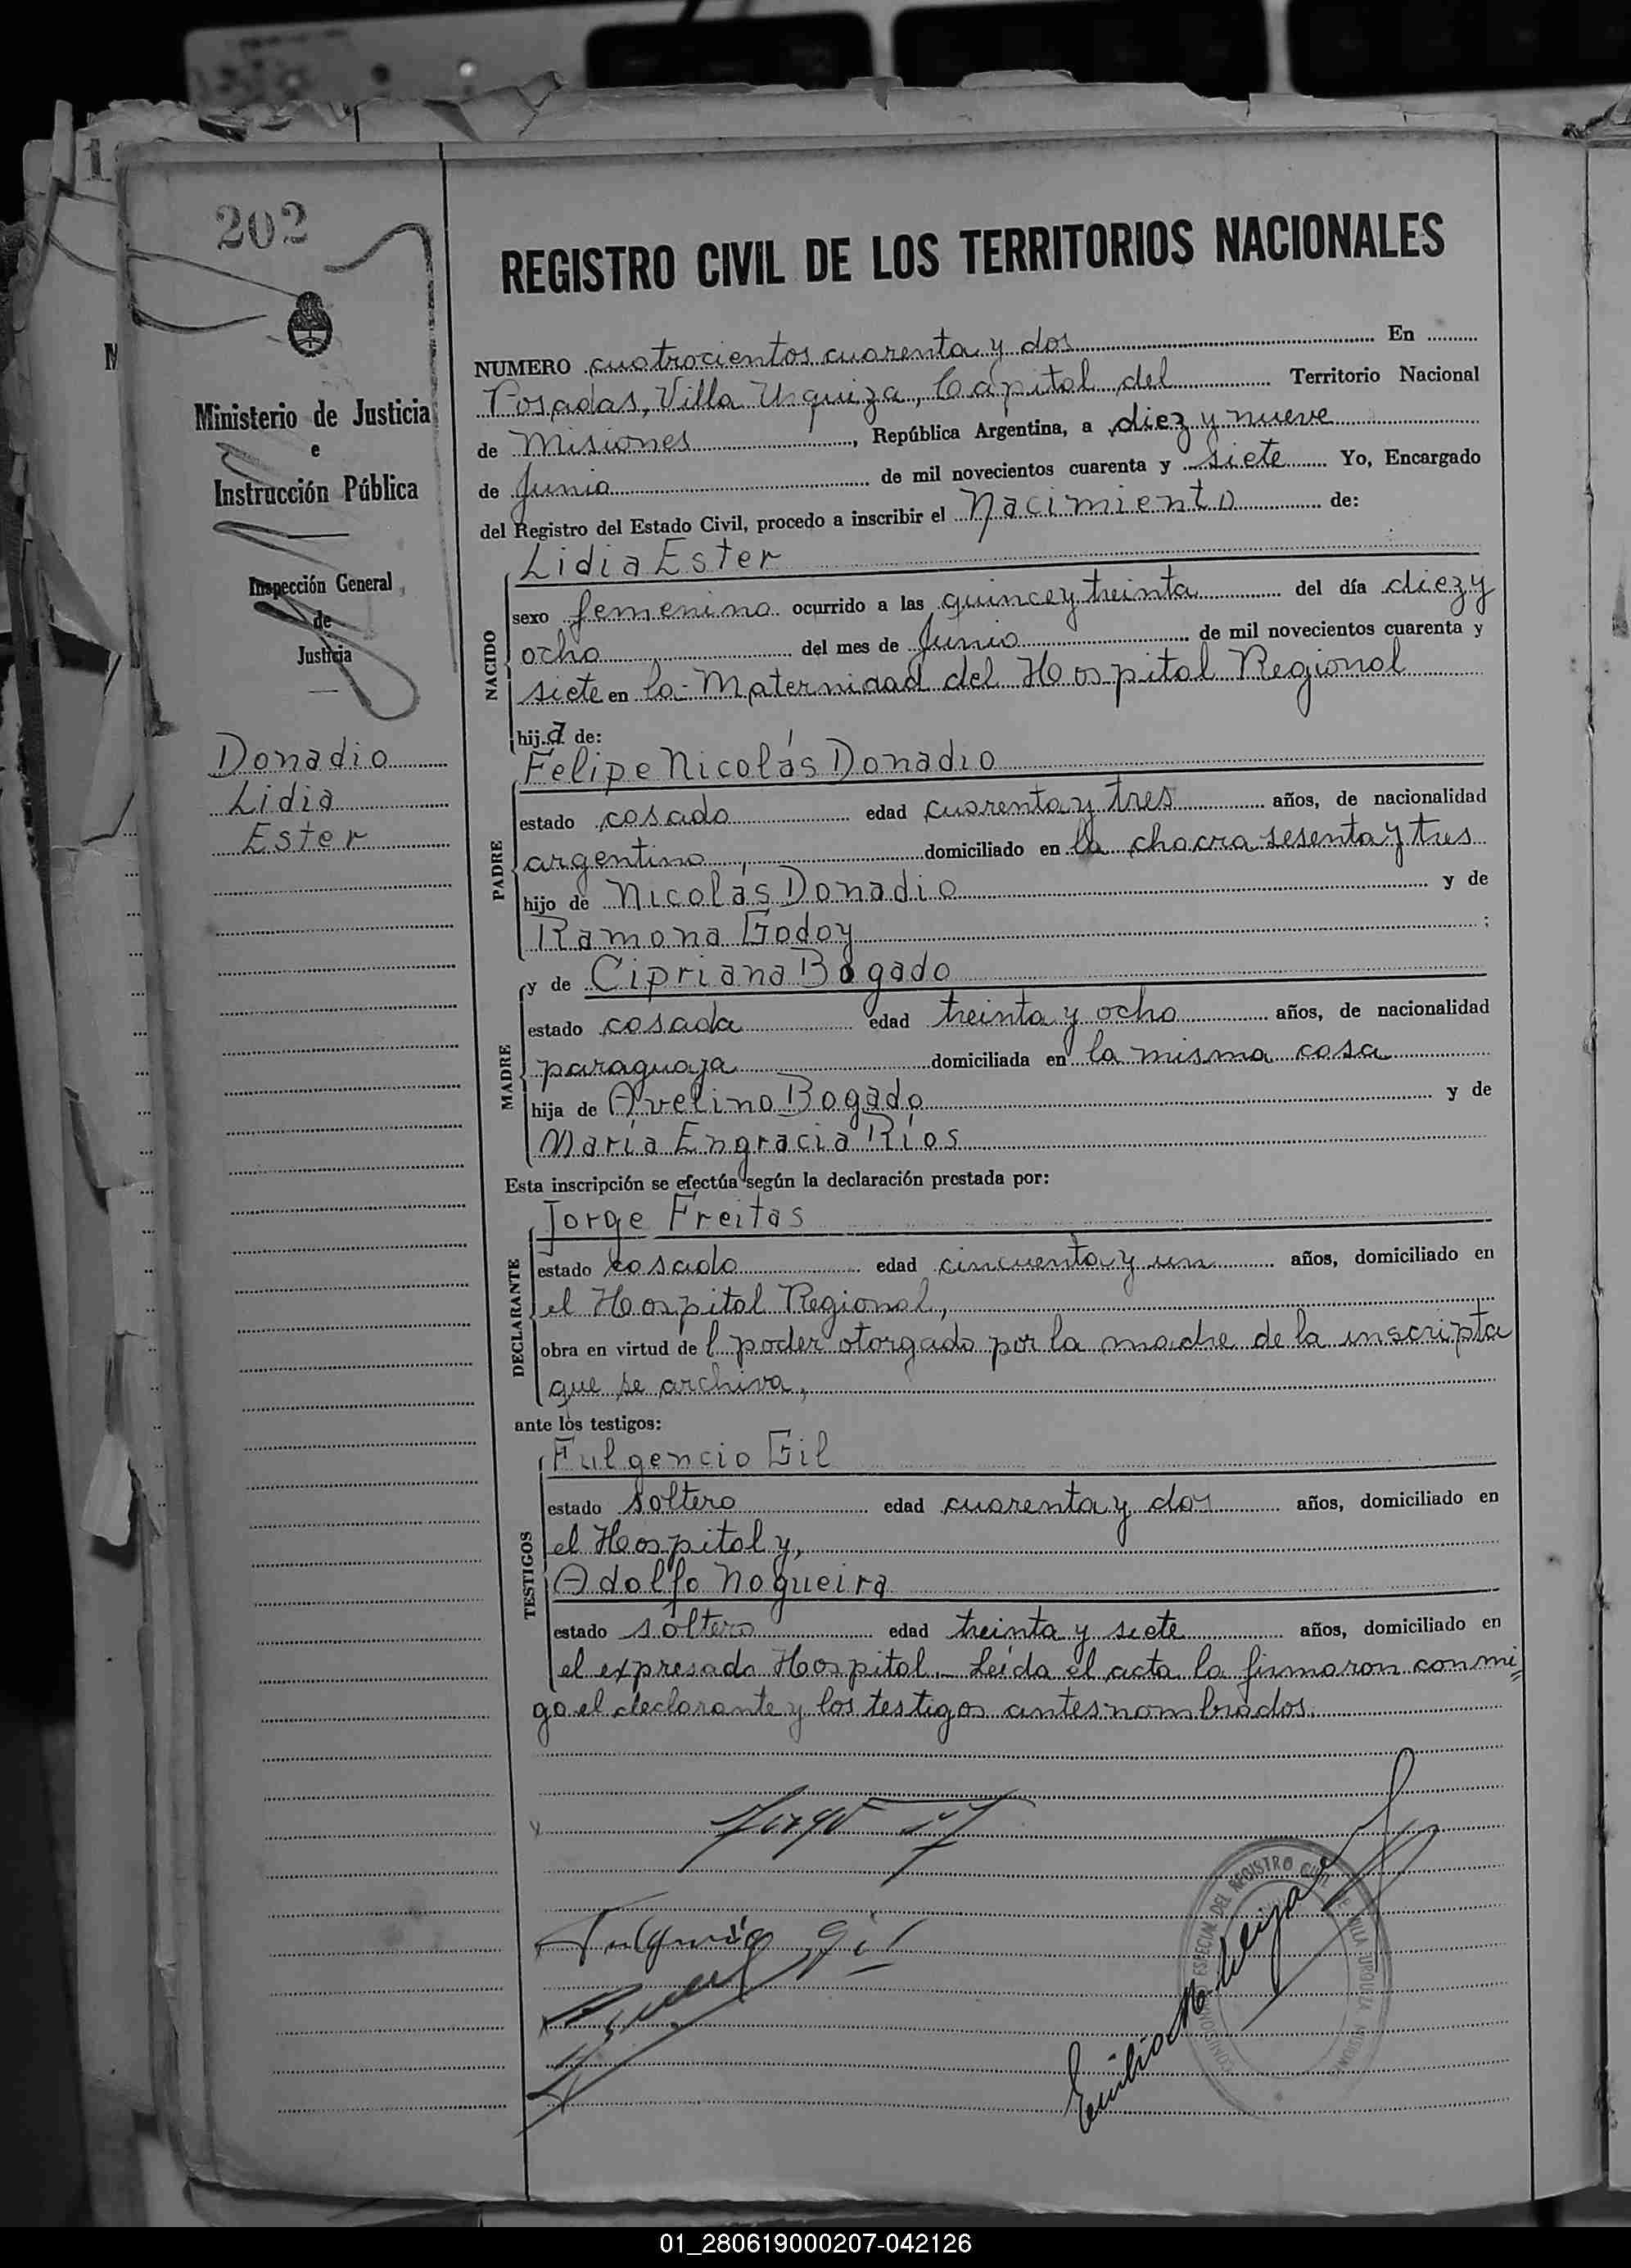 202
REGISTRO CIVIL DE LOS TERRITORIOS NACIONALES
Ministerio de Justicia
e
Instrucción Pública
Inspección General
de
Justicia
Donadio
Lidia
Ester
NUMERO cuatrocientos cuarenta y dos En
Posadas, Villa Urquiza, Capital del Territorio Nacional
de Misiones, República Argentina, a diez y nueve
de Junio de mil novecientos cuarenta y siete Yo, Encargado
del Registro del Estado Civil, procedo a inscribir el Nacimiento de:
Lidia Ester
NACIDO
sexo femenino ocurrido a las quince y treinta del día diez y
ocho del mes de Junio de mil novecientos cuarenta y
siete en la Maternidad del Hospital Regional
hija de:
Felipe Nicolás Donadio
PADRE
estado casado edad cuarenta y tres años, de nacionalidad
argentino, domiciliado en la chacra sesenta y tres
hijo de Nicolás Donadio y de
Ramona Godoy;
y de Cipriana Bogado
MADRE
estado casada edad treinta y ocho años, de nacionalidad
paraguaya domiciliada en la misma casa
hija de Avelino Bogado y de
María Engracia Ríos
Esta inscripción se efectúa según la declaración prestada por:
Jorge Freitas
DECLARANTE
estado casado edad cincuenta y un años, domiciliado en
el Hospital Regional,
obra en virtud del poder otorgado por la madre de la inscripta
que se archiva,
ante los testigos:
Fulgencio Gil
TESTIGOS
estado soltero edad cuarenta y dos años, domiciliado en
el Hospital y,
Adolfo Nogueira
estado soltero edad treinta y siete años, domiciliado en
el expresado Hospital. Leída el acta la firmaron conmi=
go el declarante y los testigos antes nombrados.
Fulgencio Gil
ESPECIAL DEL REGISTRO CIVIL DE VILLA URQUIZA
01_280619000207-042126